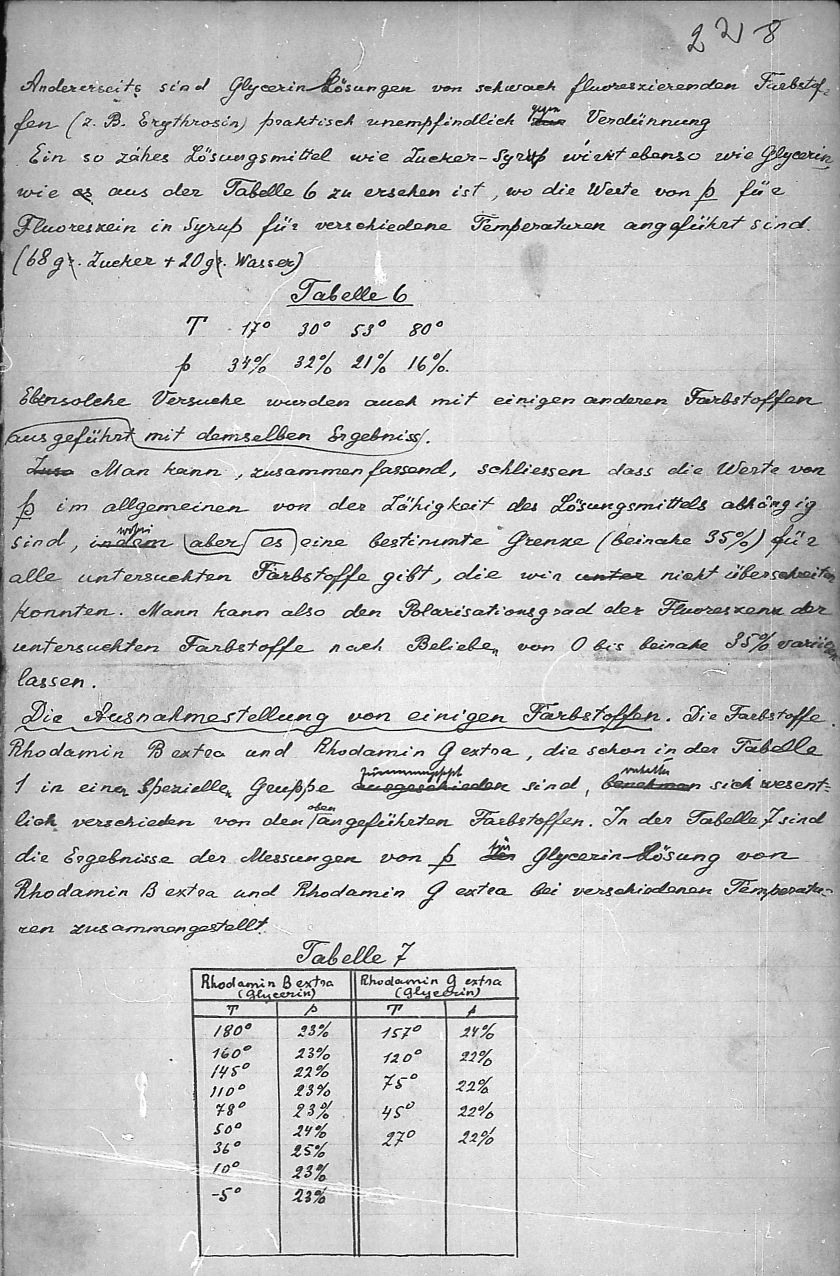 8
Andererseits sind Glycerin Lösungen von schwach fluoreszierenden Farbstof-
fen (z. B. Erythrosin) praktisch unempfindlich gegen Verdünnung
Ein so zähes Lösungsmittel wie Zucker-Syrup wirkt ebenso wie Glycerin,
wie es aus der Tabelle 6 zu ersehen ist, wo die Werte von p für
Fluoreszein in Syrup für verschiedene Temperaturen angeführt sind.
(68 gr. Zucker + 20 gr. Wasser)
Tabelle 6
T 17° 30° 53° 80°
p 34% 32% 21% 16%.
Ebensolche Versuche wurden auch mit einigen anderen Farbstoffen
ausgeführt mit demselben Ergebniss.
Man kann, zusammenfassend, schliessen dass die Werte von
p im allgemeinen von der Zähigkeit des Lösungsmittels abhängig
wobei
sind, indem aber es eine bestimmte Grenze (beinahe 35%) für
alle untersuchten Farbstoffe gibt, die wir unter nicht überschreiten
konnten. Mann kann also den Polarisationsgrad der Fluoreszenz der
untersuchten Farbstoffe nach Belieben von 0 bis beinahe 35% variieren
lassen.
Die Ausnahmestellung von einigen Farbstoffen. Die Farbstoffe
Rhodamin B extra und Rhodamin G extra, die schon in der Tabelle
1 in einer Spezielle Gruppe ausgeschieden sind, benehmen sich wesent-
oben
lich verschieden von den angeführten Farbstoffen. In der Tabelle 7 sind
für
die Ergebnisse der Messungen von p Glycerin-Lösung von
Rhodamin B extra und Rhodamin G extra bei verschiedenen Temperatu-
ren zusammengestellt.
Tabelle 7
Rhodamin B extra Rhodamin G extra
(Glycerin) (Glycerin)
T p T p
180° 23% 157° 24%
160° 23% 120° 22%
145° 22% 75° 22%
110° 23% 45° 22%
78° 23% 27° 22%
50° 24%
36° 25%
10° 23%
-5° 23%